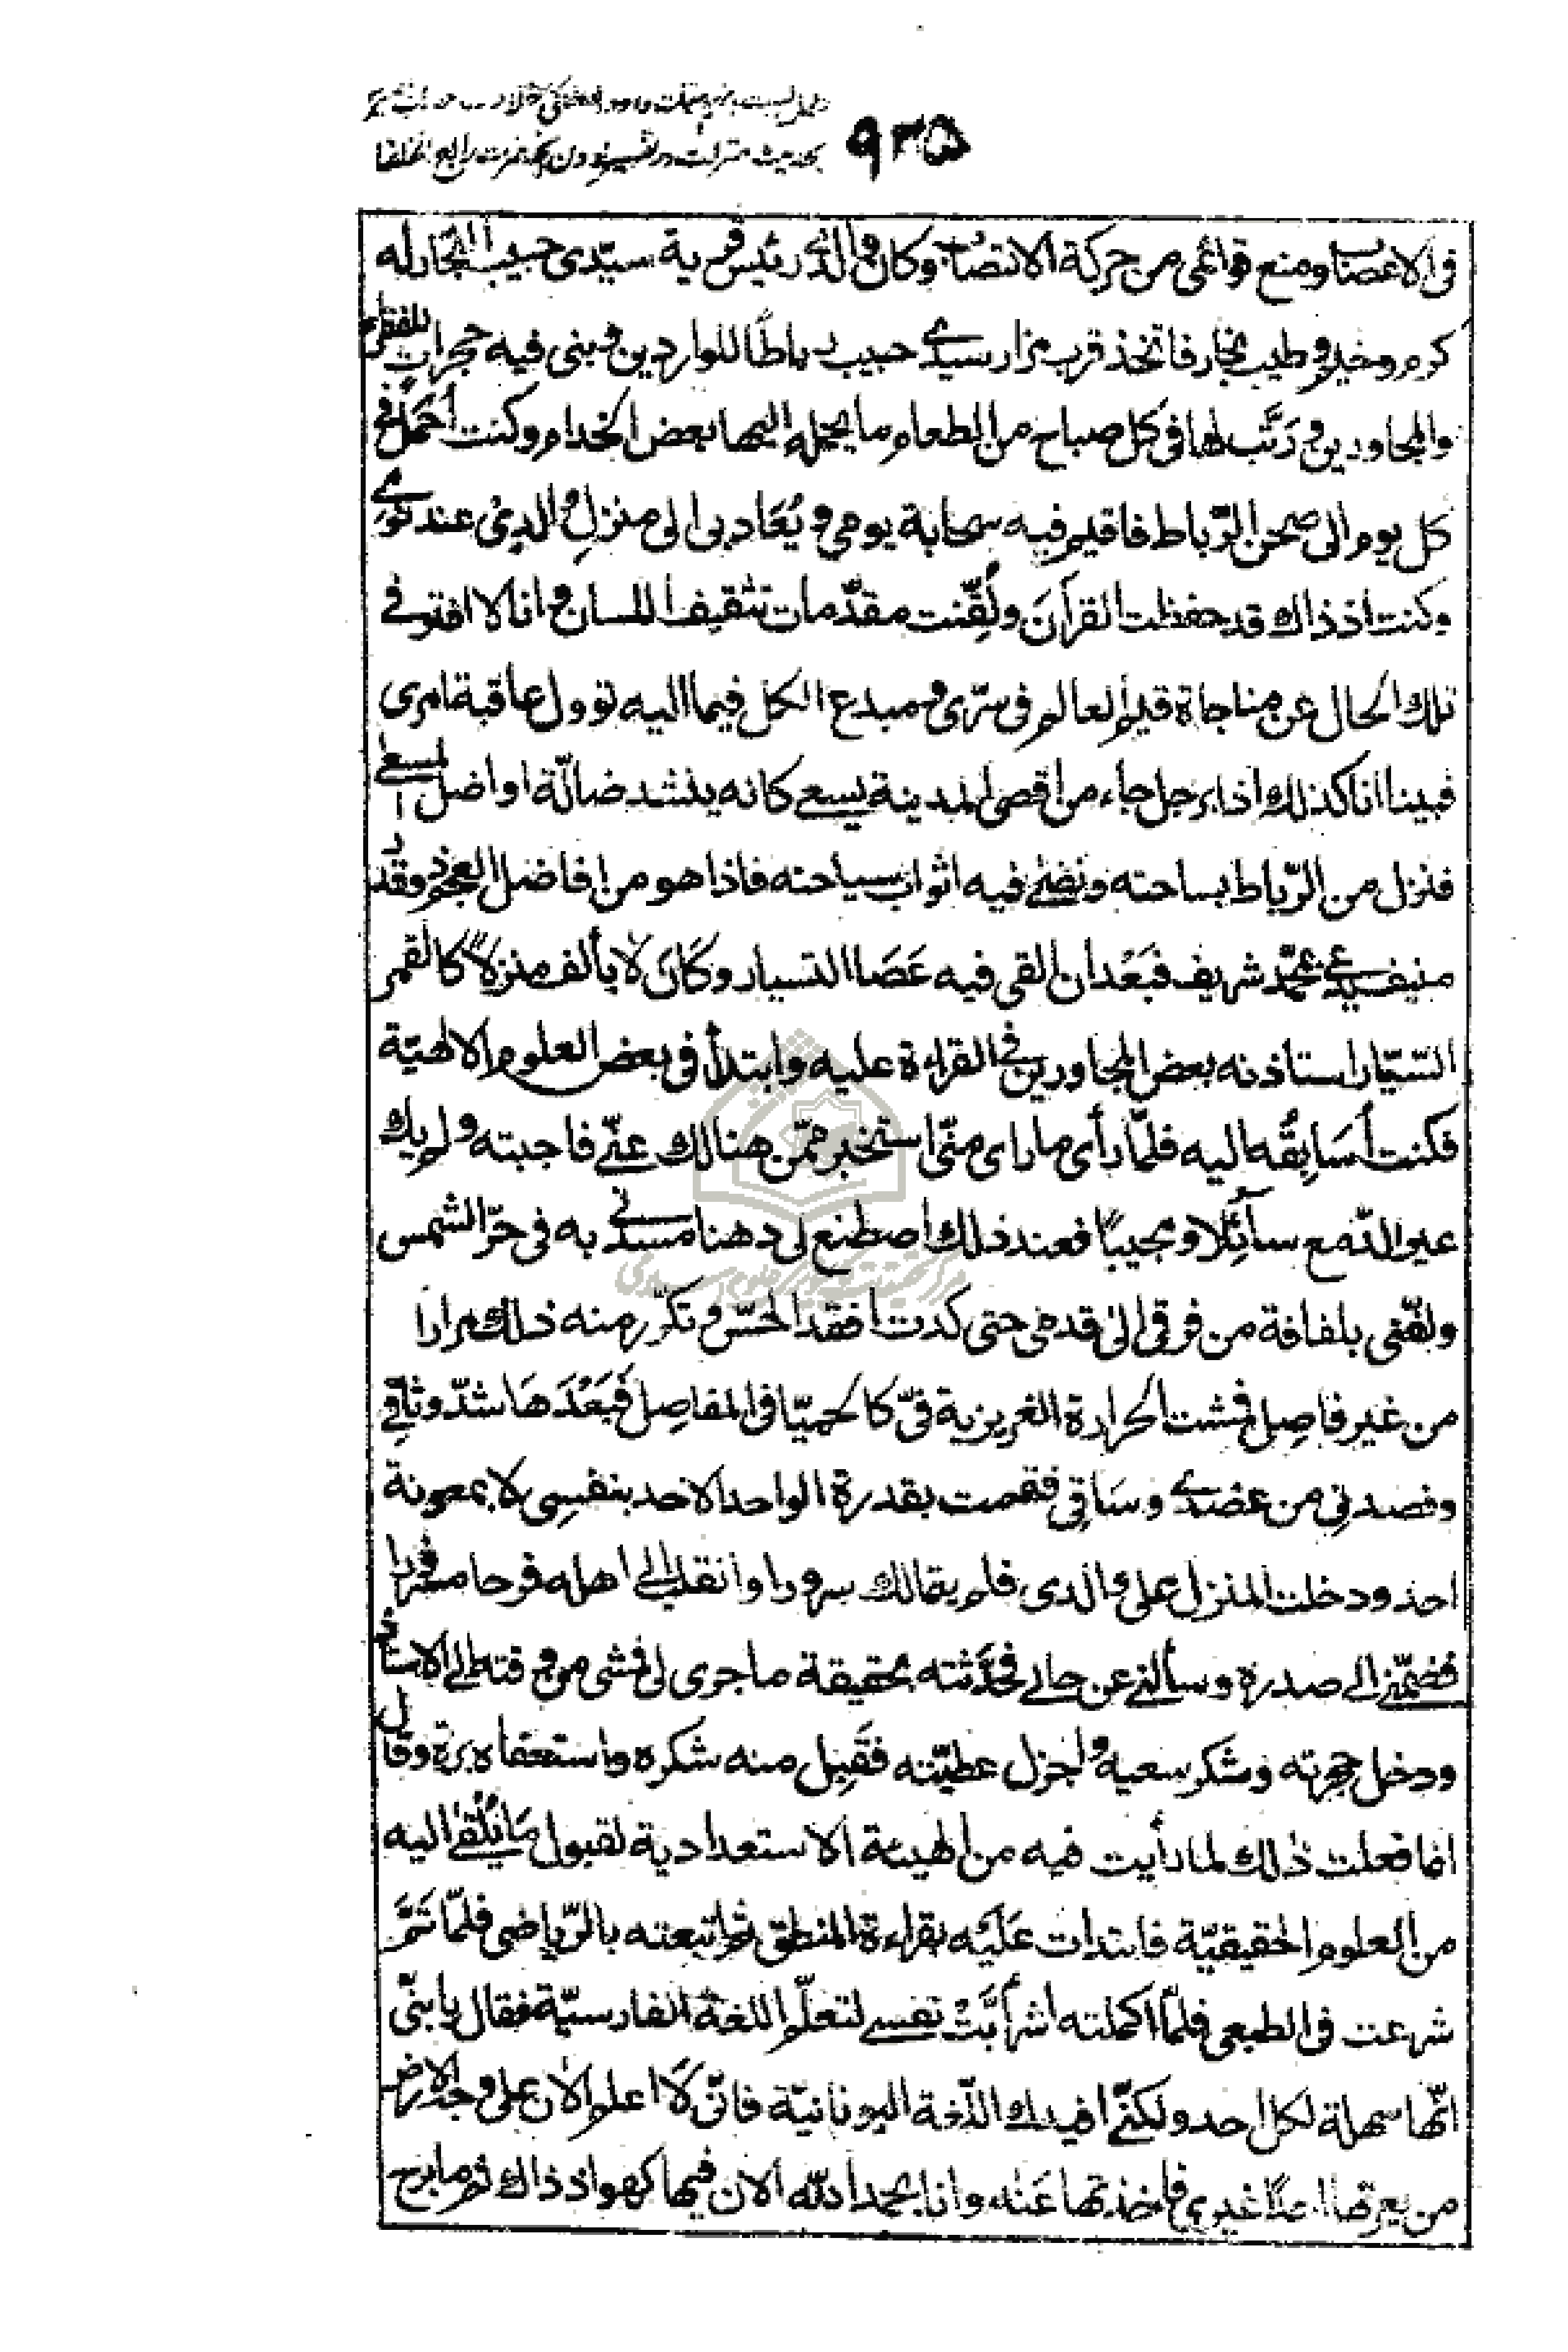 ٩٣٥
بحديث منزلت در تفسير بودن آنحضرت رابع الخلفا
فى الاعصاب ومنع قوائمى من حركة الانتصاب وكان والدى رئيس قرية سيّدى حبيب النجار له
كرم وخير وطيب نجار فاتخذ قرب مزار سيدى حبيب رباطًا للواردين وبنى فيه حجرات للفقراء
والمجاورين ورَتَّب لها فى كل صباح من الطعام ما يحمله اليها بعض الخدام وكنت أُحمَلُ فى
كل يوم الى صحن الرّباط فاقيم فيه سحابة يومى ويُعَاد بى الى منزل والدى عند نومى
وكنت اذ ذاك قد حفظت القرآنَ ولُقِّنت مقدّمات تثقيف اللسان وانا لا افتر فى
تلك الحال عن مناجاة قيّم العالم فى سرّى ومبدع الكل فيما اليه تؤول عاقبة امرى
فبينا انا كذلك اذا برجل جاء من اقصى المدينة يسعى كانه ينشد ضالّة او اضل المسعى
فنزل من الرّباط بساحته ونضى فيه اثواب سياحته فاذا هو من افاضل العجم ذو قدر
منيف يدعى محمّد شريف فبَعْدَ ان القى فيه عَصَا التسيار وكَانَ لا يألف منزلًا كالقمر
السّيّار استاذنه بعض المجاورين فى القراءة عليه وابتدأ فى بعض العلوم الالهيّة
فكنت أُسَابِقُه اليه فلمّا رأى ما راى منّى استخبر ممّن هنالك عنّى فاجبته ولم يك
غير الدّمع سآئلا ومجيبًا فعند ذلك اصطنع لى دهنا مسّدنى به فى حرّ الشمس
ولفّنى بلفافة من فرقى الىٰ قدمى حتى كدت افقد الحسّ وتكرّر منه ذلك مرارا
من غير فاصِل فمشت الحرارة الغريزية فىّ كالحميّا فى المفاصِل فبَعْدَهَا شدّ وثاقى
وفصدنى من عضدى وسَاقى فقمت بقدرة الواحد الاحد بنفسِى لا بمعونة
احد ودخلت المنزل على والدى فلم يتمالك سرورا وانقلب الى اهله فرحا مسرورا
فضمّنى الى صدره وسألنى عن حالى فحدّثته بحقيقة ما جرى لى فمشى من وقته الى الاستاذ
ودخل حجرته وشكر سعيه واجزل عطيّته فقَبِل منه شكره واستعفاه برّه وقال
انما فعلت ذلك لما رأيت فيه من الهيئة الاستعدادية لقبول مَا يُلْقىٰ اليه
من العلوم الحقيقيّة فابتدات عَلَيْه بقراءة المنطق ثم اتبعته بالرّياضى فلمّا تَمَّ
شرعت فى الطبعى فلمّا اكملته اشرأبَّتْ نفسى لتعلّم اللغة الفارسيّة فقال يا بنىّ
انّها سهلة لكل احد ولكنّى افيدك اللّغة اليونانيّة فانّى لَا اعلم الان على وجه الارض
من يعرفها احدًا غيرى فاخذتها عَنه وانا بحمد اللّه الان فيها كهو اذ ذاك ثم ما برح